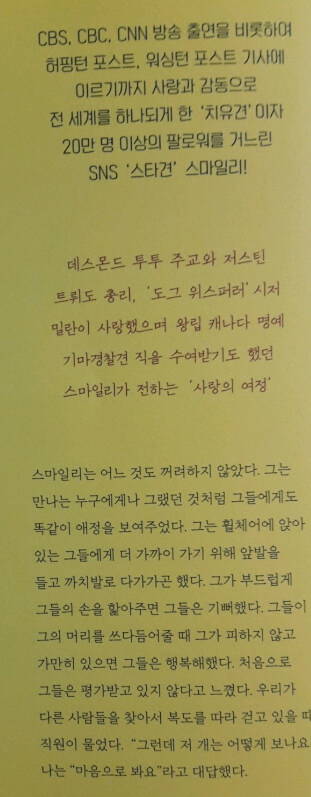 CBS, CBC, CNN 방송 출연을 비롯하여
허핑턴 포스트, 워싱턴 포스트 기사에
이르기까지 사랑과 감동으로
전 세계를 하나되게 한 ‘치유견’이자
20만 명 이상의 팔로워를 거느린
SNS ‘스타견’ 스마일리!
데스몬드 투투 주교와 저스틴
트뤼도 총리, ‘도그 위스퍼러’ 시저
밀란이 사랑했으며 왕립 캐나다 명예
기마경찰견 직을 수여받기도 했던
스마일리가 전하는 ‘사랑의 여정’
스마일리는 어느 것도 꺼려하지 않았다. 그는
만나는 누구에게나 그랬던 것처럼 그들에게도
똑같이 애정을 보여주었다. 그는 휠체어에 앉아
있는 그들에게 더 가까이 가기 위해 앞발을
들고 까치발로 다가가곤 했다. 그가 부드럽게
그들의 손을 핥아주면 그들은 기뻐했다. 그들이
그의 머리를 쓰다듬어줄 때 그가 피하지 않고
가만히 있으면 그들은 행복해했다. 처음으로
그들은 평가받고 있지 않다고 느꼈다. 우리가
다른 사람들을 찾아서 복도를 따라 걷고 있을 때
직원이 물었다. “그런데 저 개는 어떻게 보나요
나는 “마음으로 봐요”라고 대답했다.